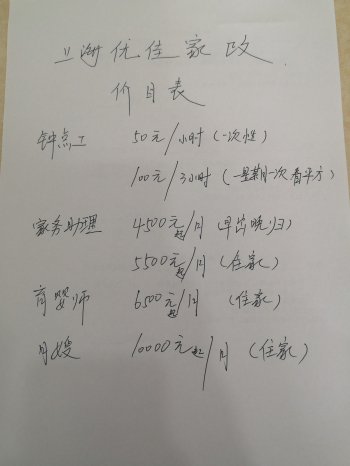 上海优佳家政
价目表
钟点工 50元/小时(一次性)
100元/3小时(一星期一次看平方)
家务助理 4500元起/月(早出晚归)
5500元起/月(住家)
育婴师 6500元起/月(住家)
月嫂 10000元起/月(住家)